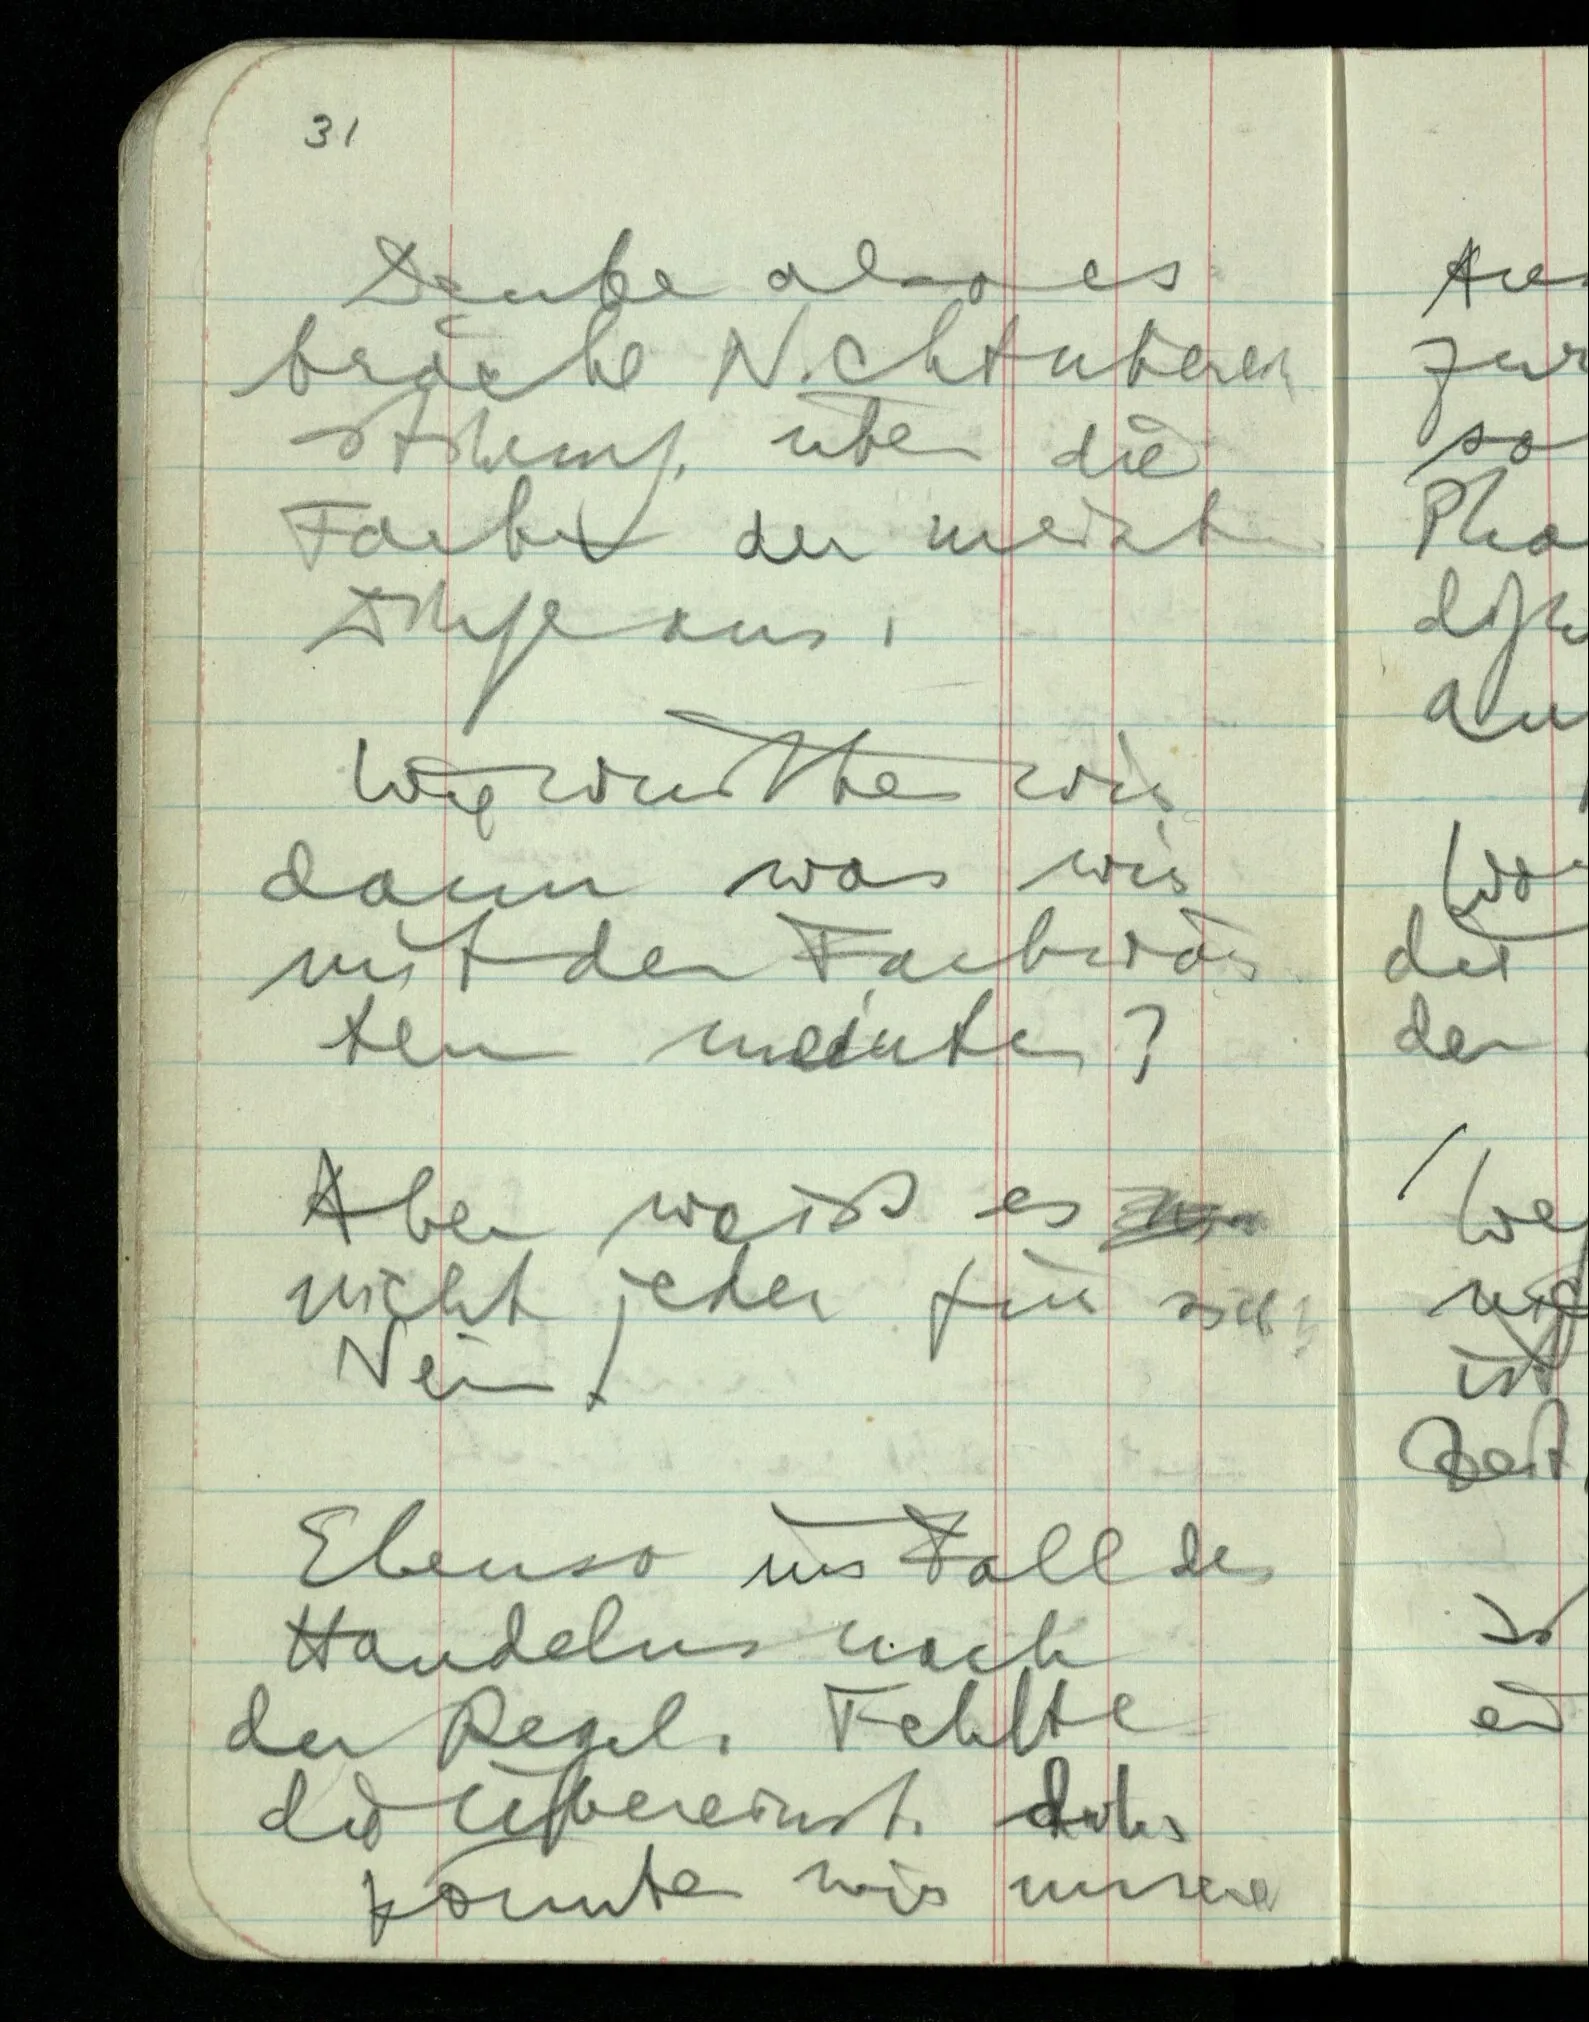 31
Denke also es
bräche Nichtuberein
stimmg. über die
Farben der meisten
Dinge aus.
Wie wüßten wir
dann was wir
mit den Farbwör
tern meinten?
Aber weiß es
nicht jeder für sich?
Nein!
Ebenso im Fall des
Handelns nach
der Regel. Fehlte
die Übereinst.
könnten wir unsere
die
der
ist